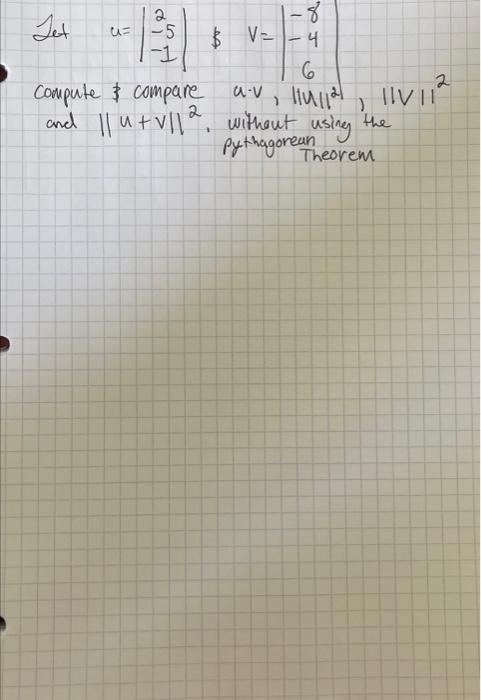 Let u= |2 -5 -1| & V= |-8 -4 6|
compute & compare u·v, ||u||², ||V||²
and ||u+v||², without using the
pythagorean
Theorem